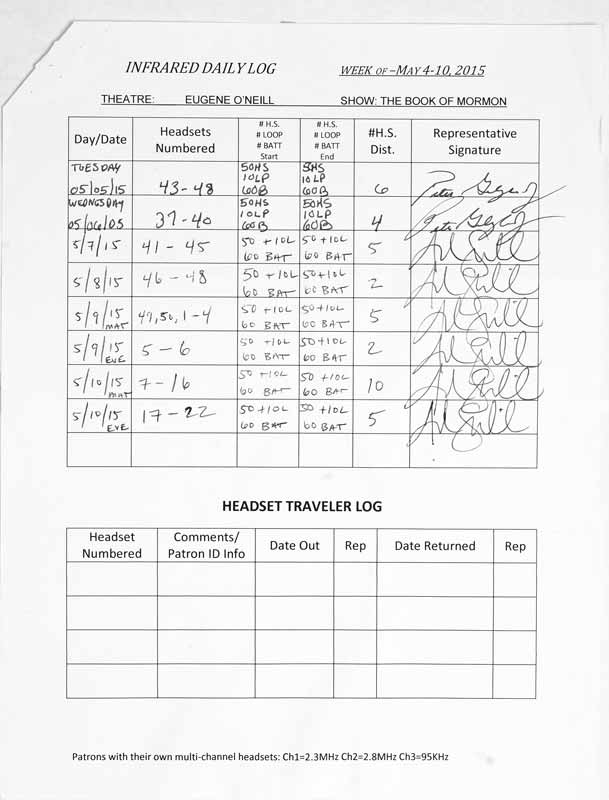 INFRARED DAILY LOG WEEK OF –MAY 4-10, 2015
THEATRE: EUGENE O'NEILL SHOW: THE BOOK OF MORMON
Day/Date Headsets Numbered # H.S. # LOOP # BATT Start # H.S. # LOOP # BATT End #H.S. Dist. Representative Signature
TUESDAY 50HS 5HS
10LP 10LP
05/05/15 43-48 60B 60B 6
WEDNSDAY 50HS 50HS
10LP 10LP
05/06/05 37-40 60B 60B 4
5/7/15 41 - 45 50 +10L 50 +10L 5
60 BAT 60 BAT
5/8/15 46 - 48 50 +10L 50+10L 2
60 BAT 60 BAT
5/9/15 MAT 49,50,1-4 50 +10L 50+10L 5
60 BAT 60 BAT
5/9/15 EVE 5 - 6 50 +10L 50+10L 2
60 BAT 60 BAT
5/10/15 MAT 7 - 16 50 +10L 50 +10L 10
60 BAT 60 BAT
5/10/15 EVE 17 - 22 50 +10L 50 +10L 5
60 BAT 60 BAT
HEADSET TRAVELER LOG
Headset Numbered Comments/ Patron ID Info Date Out Rep Date Returned Rep
Patrons with their own multi-channel headsets: Ch1=2.3MHz Ch2=2.8MHz Ch3=95KHz